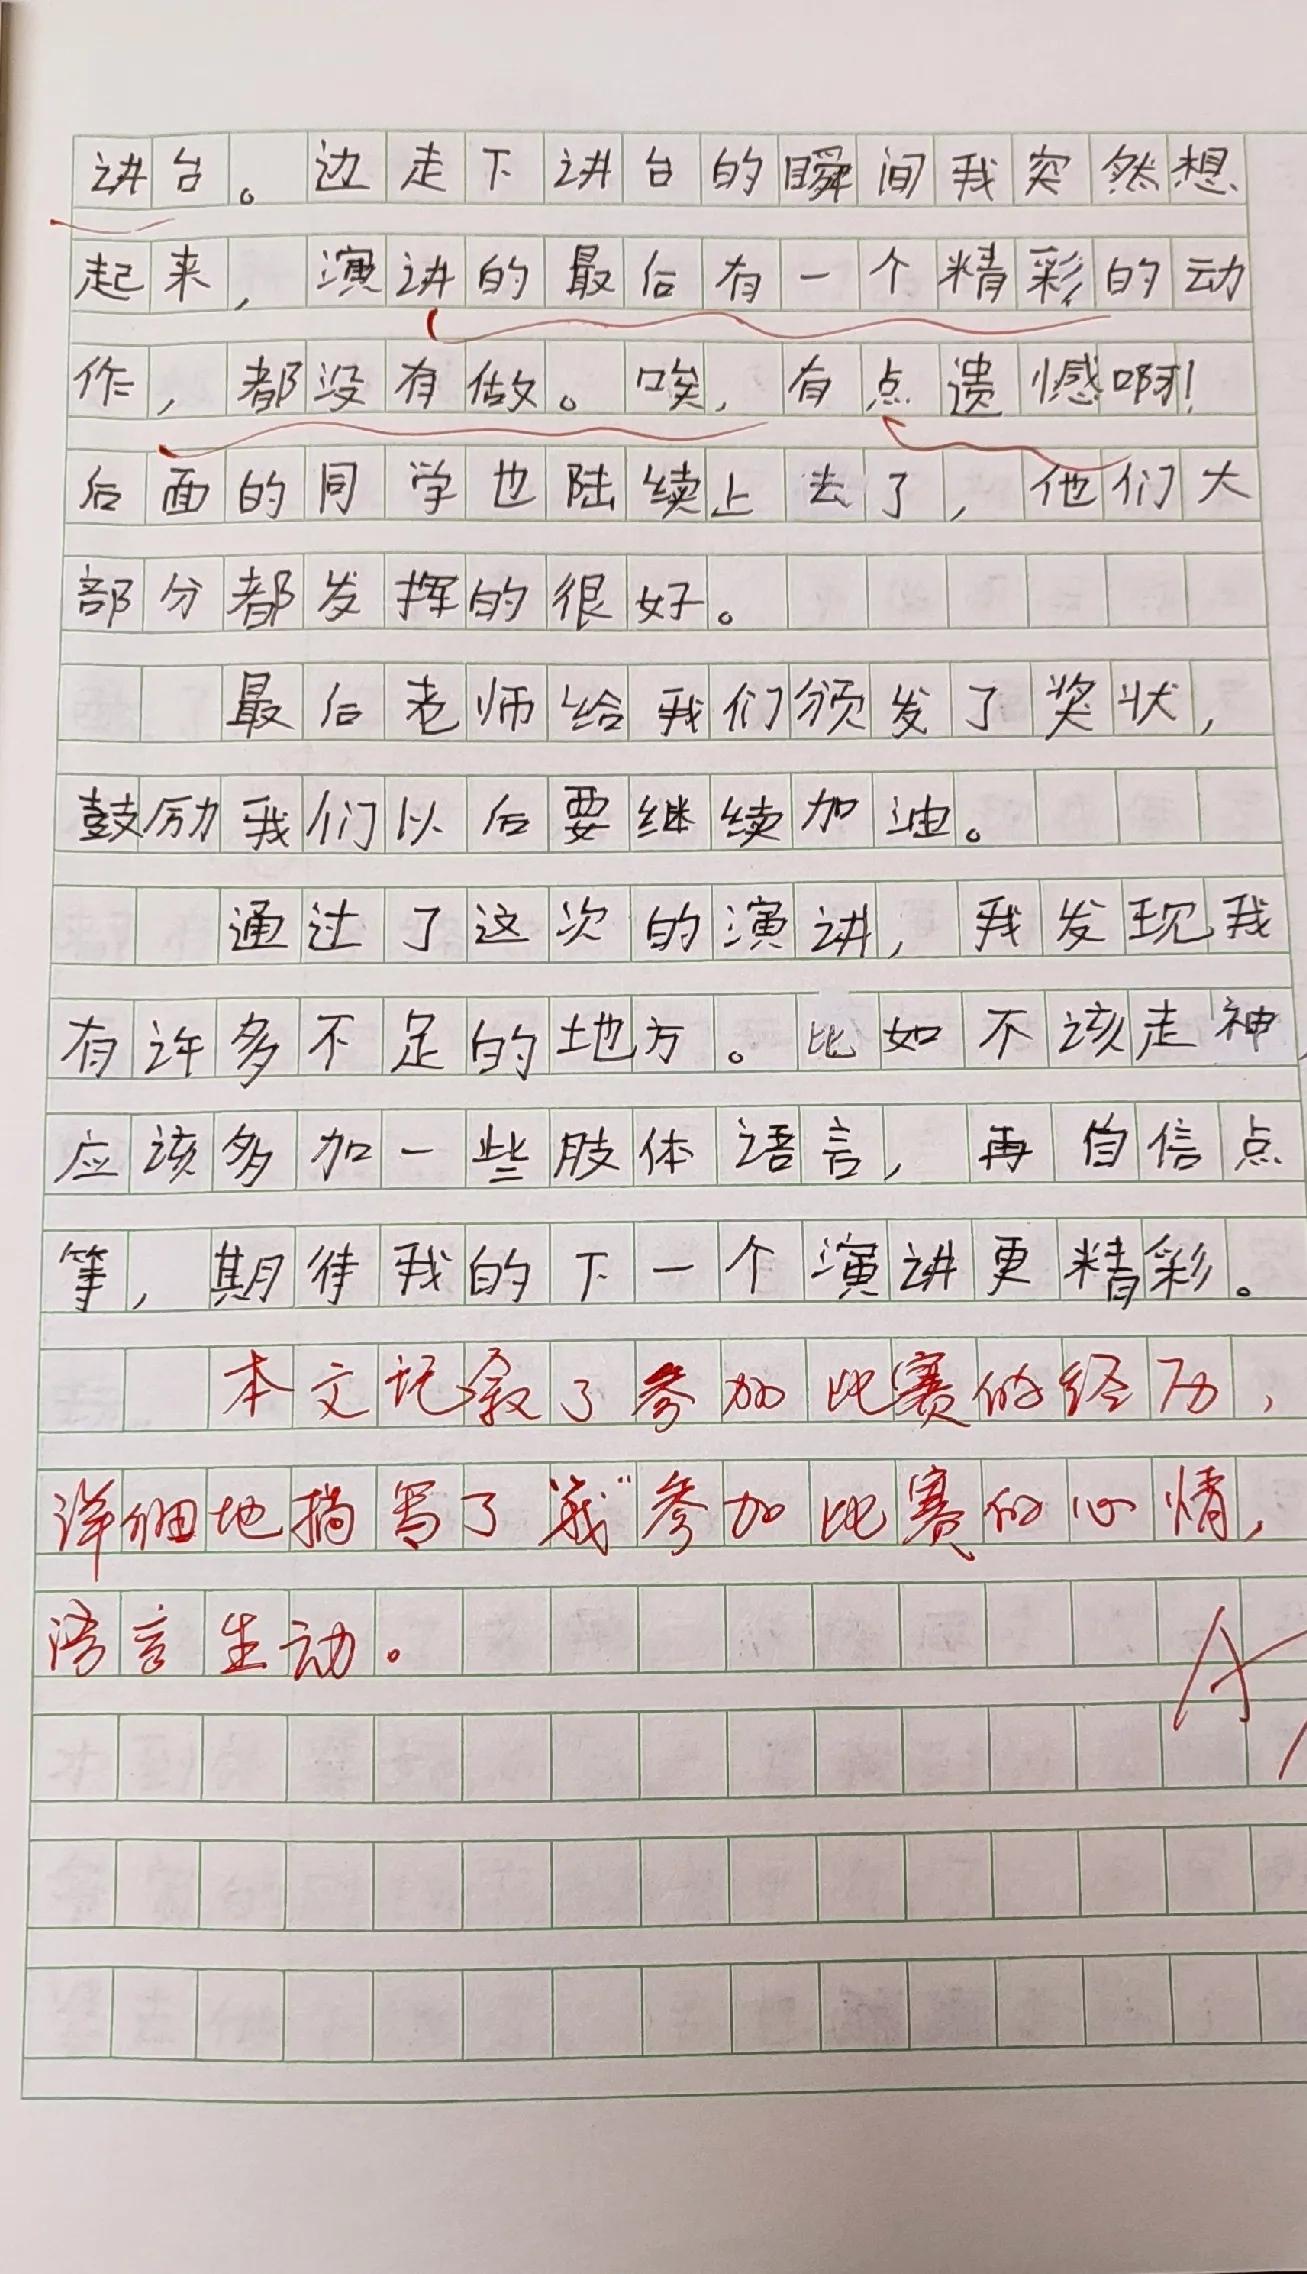 讲台。边走下讲台的瞬间我突然想
起来，演讲的最后有一个精彩的动
作，都没有做。唉，有点遗憾啊！
后面的同学也陆续上去了，他们大
部分都发挥的很好。
最后老师给我们颁发了奖状，
鼓励我们以后要继续加油。
通过了这次的演讲，我发现我
有许多不足的地方。比如不该走神，
应该多加一些肢体语言，再自信点
等，期待我的下一个演讲更精彩。
本文记叙了参加比赛的经历，
详细地描写了“我”参加比赛的心情，
语言生动。
A